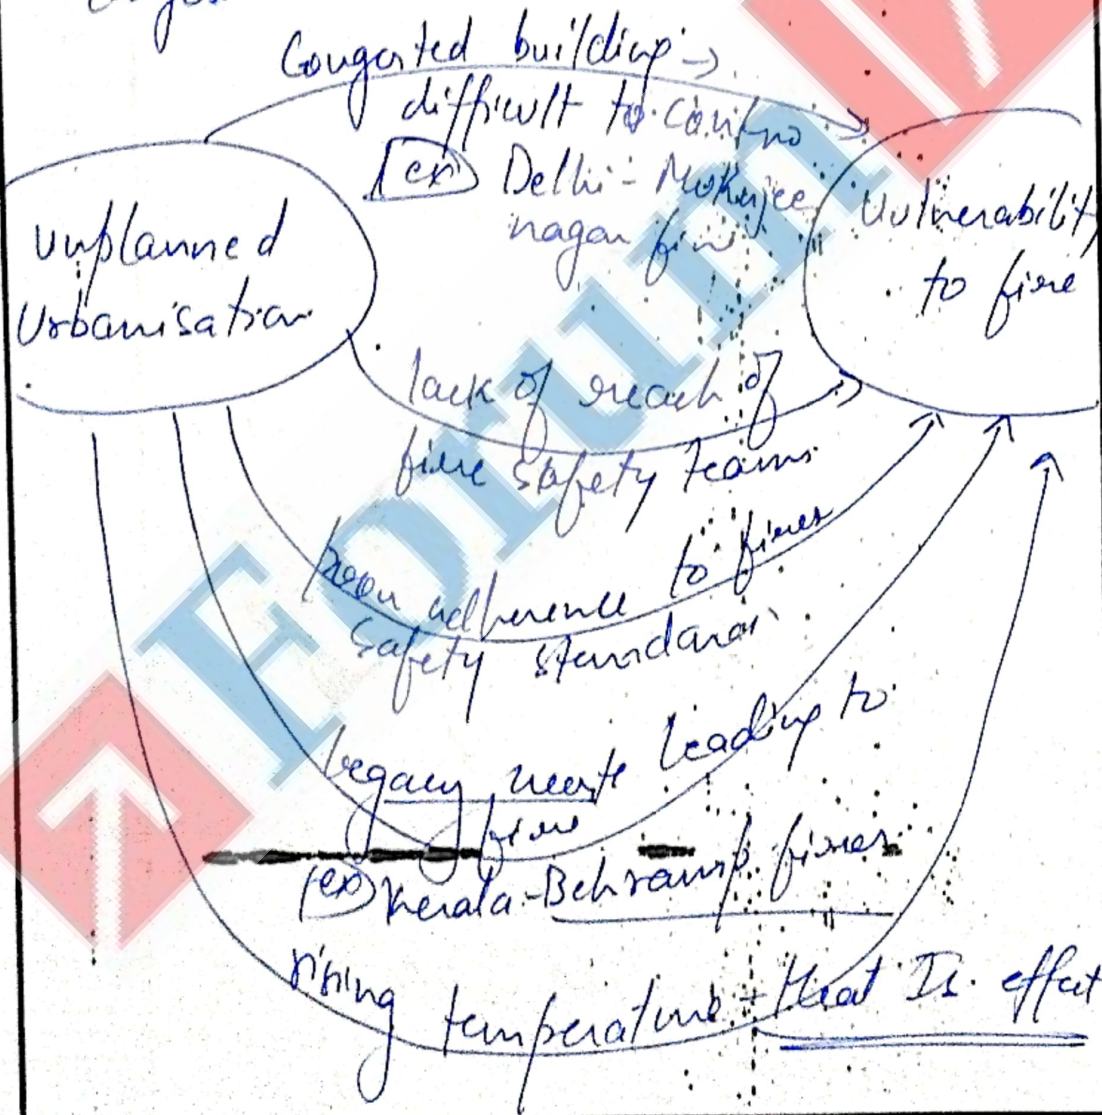 Congested building →
difficult to contro
ex Delhi - Mukherjee
nagar fire
Unplanned
Urbanisation
Vulnerability
to fire
lack of reach of
fire safety teams
poor adherence to fires
safety standards
legacy waste leading to
fire
(ex) Kerala - Behramp fires
rising temperature - Heat Is. effect
Forum